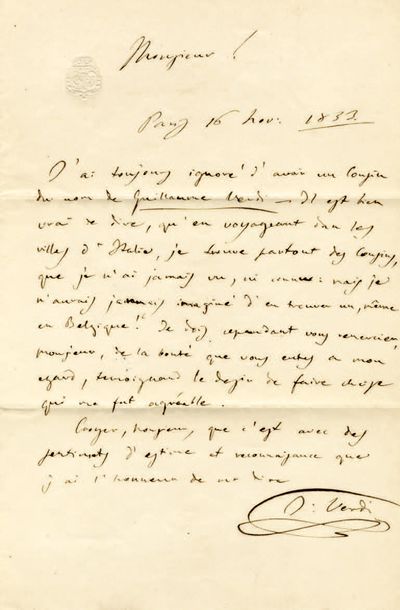 Monsieur !
Paris 16 Nov: 1853.
J'ai toujours ignoré d'avoir un Cousin
du nom de Guillaume Verdi — Il est bien
vrai de dire, qu'en voyageant dans les
villes d'Italie, je trouve partout des Cousins,
que je n'ai jamais vu, ni connu: mais je
n'aurais jamais imaginé d'en trouver un, même
en Belgique! Je dois cependant vous remercier,
monsieur, de la bonté que vous eutes a mon
egard, temoignant le desir de faire chose
qui me fut agréable.
Croyez, monsieur, que c'est avec des
sentiments d'estime et reconnaissance que
j'ai l'honneur de me dire
G: Verdi